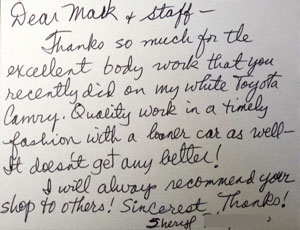 Dear Mark & staff —
Thanks so much for the
excellent body work that you
recently did on my white Toyota
Camry. Quality work in a timely
fashion with a loaner car as well—
It doesn't get any better!
I will always recommend your
shop to others! Sincerest Thanks!
Sheryl